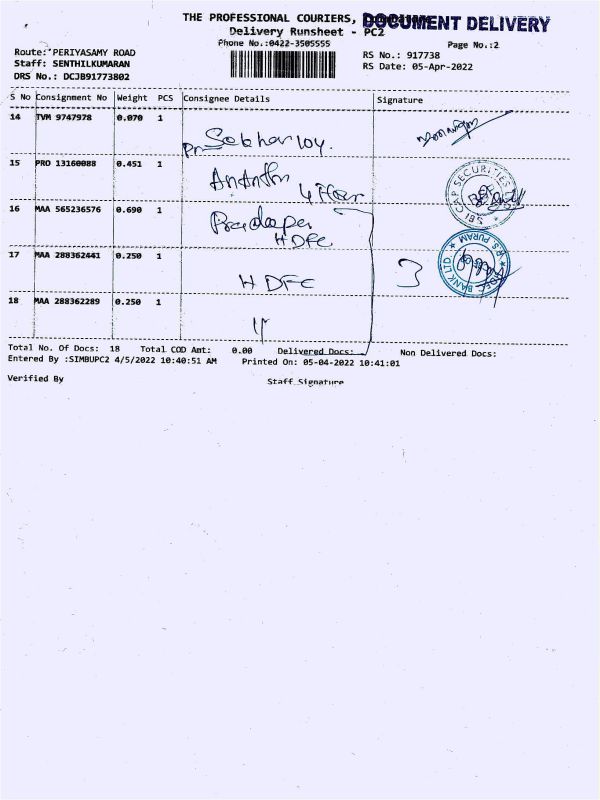 THE PROFESSIONAL COURIERS,
DOCUMENT DELIVERY
Delivery Runsheet - PC2
Phone No.:0422-3505555
Page No.:2
Route: PERIYASAMY ROAD
RS No.: 917738
Staff: SENTHILKUMARAN
RS Date: 05-Apr-2022
DRS No.: DCJB91773802
S No Consignment No Weight PCS Consignee Details Signature
14 TVM 9747978 0.070 1
15 PRO 13160088 0.451 1
Ananth
SBI CAP SECURITIES
16 MAA 565236576 0.690 1
HDFC
R.S. PURAM
HDFC BANK LTD
17 MAA 288362441 0.250 1
HDFC
3
18 MAA 288362289 0.250 1
Total No. Of Docs: 18 Total COD Amt: 0.00 Delivered Docs: Non Delivered Docs:
Entered By :SIMBUPC2 4/5/2022 10:40:51 AM Printed On: 05-04-2022 10:41:01
Verified By Staff Signature